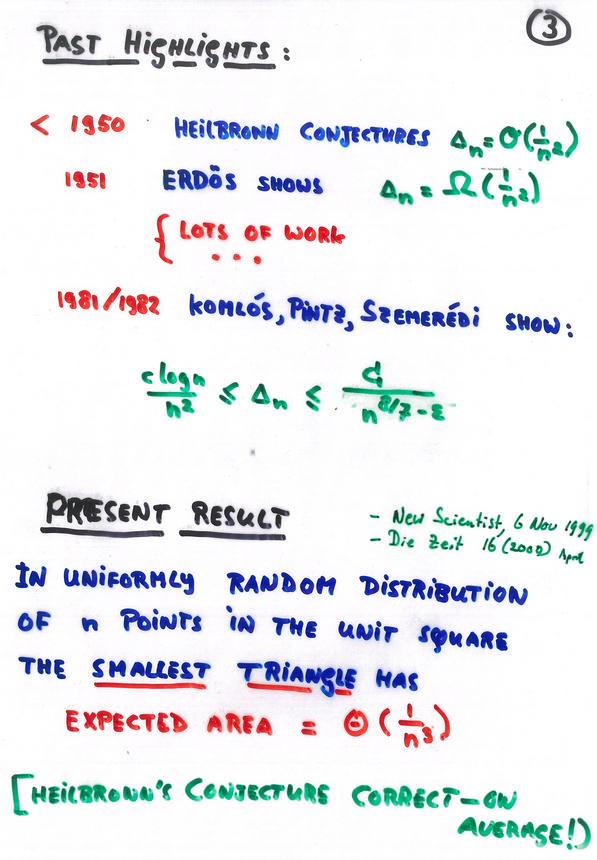 ③
PAST HIGHLIGHTS:
< 1950 HEILBRONN CONJECTURES Δn = O(1/n²)
1951 ERDÖS SHOWS Δn = Ω(1/n²)
{ LOTS OF WORK
...
1981/1982 KOMLÓS, PINTZ, SZEMERÉDI SHOW:
c log n / n² ≤ Δn ≤ C / n^(8/7-ε)
PRESENT RESULT
- New Scientist, 6 Nov 1999
- Die Zeit 16 (2000) April
IN UNIFORMLY RANDOM DISTRIBUTION
OF n POINTS IN THE UNIT SQUARE
THE SMALLEST TRIANGLE HAS
EXPECTED AREA = Θ(1/n³)
[HEILBRONN'S CONJECTURE CORRECT-ON
AVERAGE!)